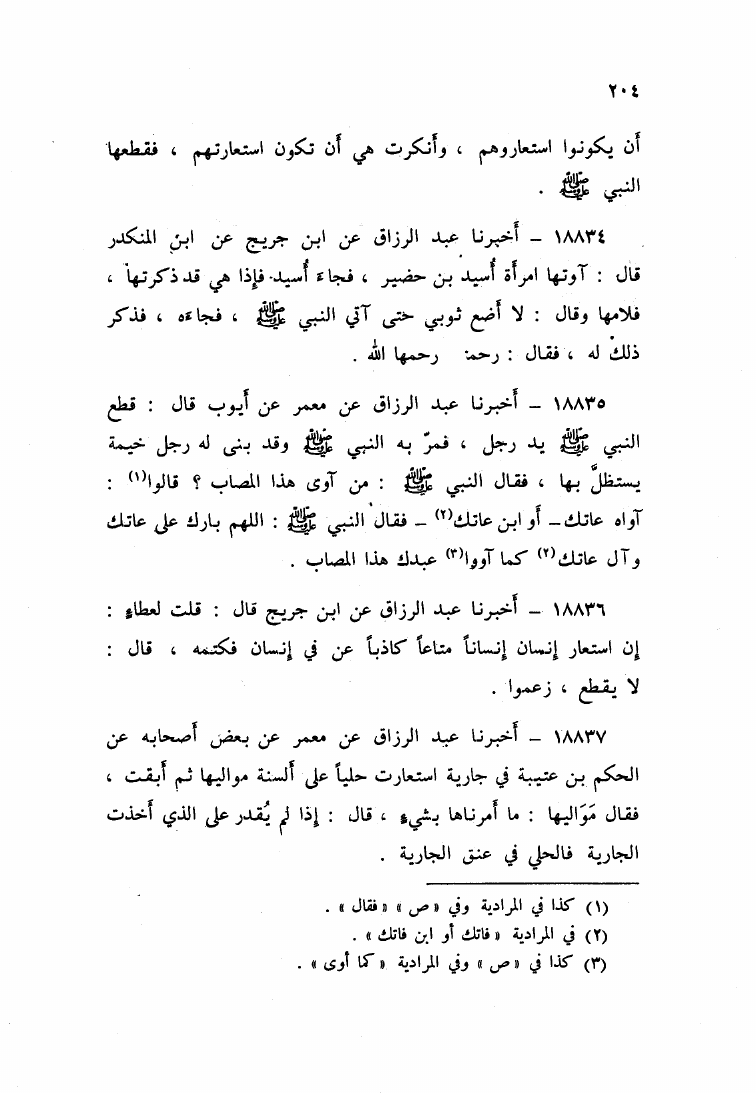 ٢٠٤
أن يكونوا استعاروهم ، وأنكرت هي أن تكون استعارتهم ، فقطعها
النبي ﷺ .
١٨٨٣٤ – أخبرنا عبد الرزاق عن ابن جريج عن ابن المنكدر
قال : آوتها امرأة أُسيد بن حضير ، فجاءَ أُسيد فإذا هي قد ذكرتها ،
فلامها وقال : لا أضع ثوبي حتى آتي النبي ﷺ ، فجاءَه ، فذكر
ذلك له ، فقال : رحمتها رحمها الله .
١٨٨٣٥ – أخبرنا عبد الرزاق عن معمر عن أيوب قال : قطع
النبي ﷺ يد رجل ، فمرّ به النبي ﷺ وقد بنى له رجل خيمة
يستظلَّ بها ، فقال النبي ﷺ : من آوى هذا المصاب ؟ قالوا(١) :
آواه عاتك – أو ابن عاتك(٢) – فقال النبي ﷺ : اللهم بارك على عاتك
وآل عاتك(٢) كما آووا(٣) عبدك هذا المصاب .
١٨٨٣٦ – أخبرنا عبد الرزاق عن ابن جريج قال : قلت لعطاءٍ :
إن استعار إنسان إنساناً متاعاً كاذباً عن في إنسان فكتمه ، قال :
لا يقطع ، زعموا .
١٨٨٣٧ – أخبرنا عبد الرزاق عن معمر عن بعض أصحابه عن
الحكم بن عتيبة في جارية استعارت حلياً على ألسنة مواليها ثم أبقت ،
فقال مَوَاليها : ما أمرناها بشيءٍ ، قال : إذا لم يُقدر على الذي أخذت
الجارية فالحلي في عنق الجارية .
(١) كذا في المرادية وفي « ص » « فقال » .
(٢) في المرادية « فاتك أو ابن فاتك » .
(٣) كذا في « ص » وفي المرادية « كما أوى » .